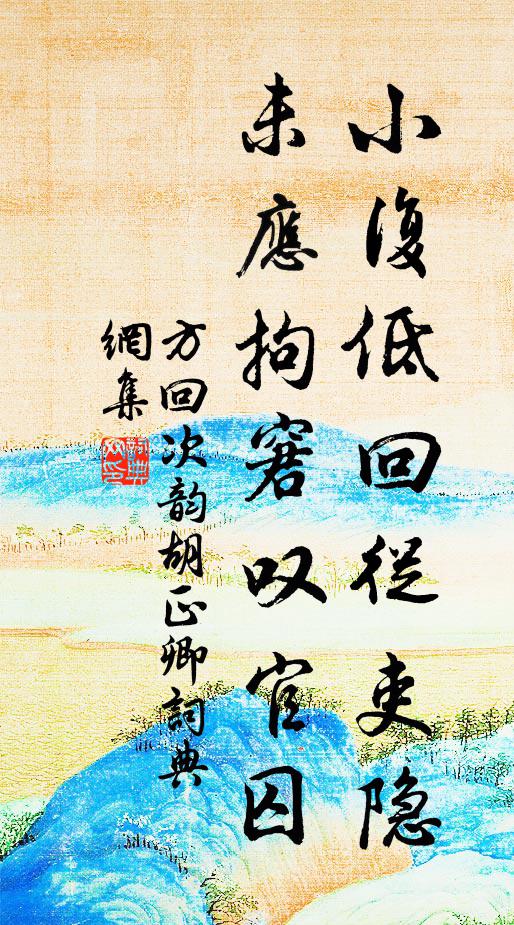 小復低回從吏隐
未應拘窘叹官囚
方回次韵胡正卿詞典
網集